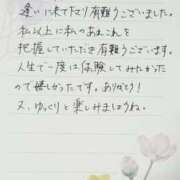 逢いに来て下さり有難うございました。
私以上に私のあれこれを
把握していただき有難うございます。
人生で一度は体験してみたかった
ので嬉しかったです。ありがとう!
又、ゆっくりと楽しみましょうね。